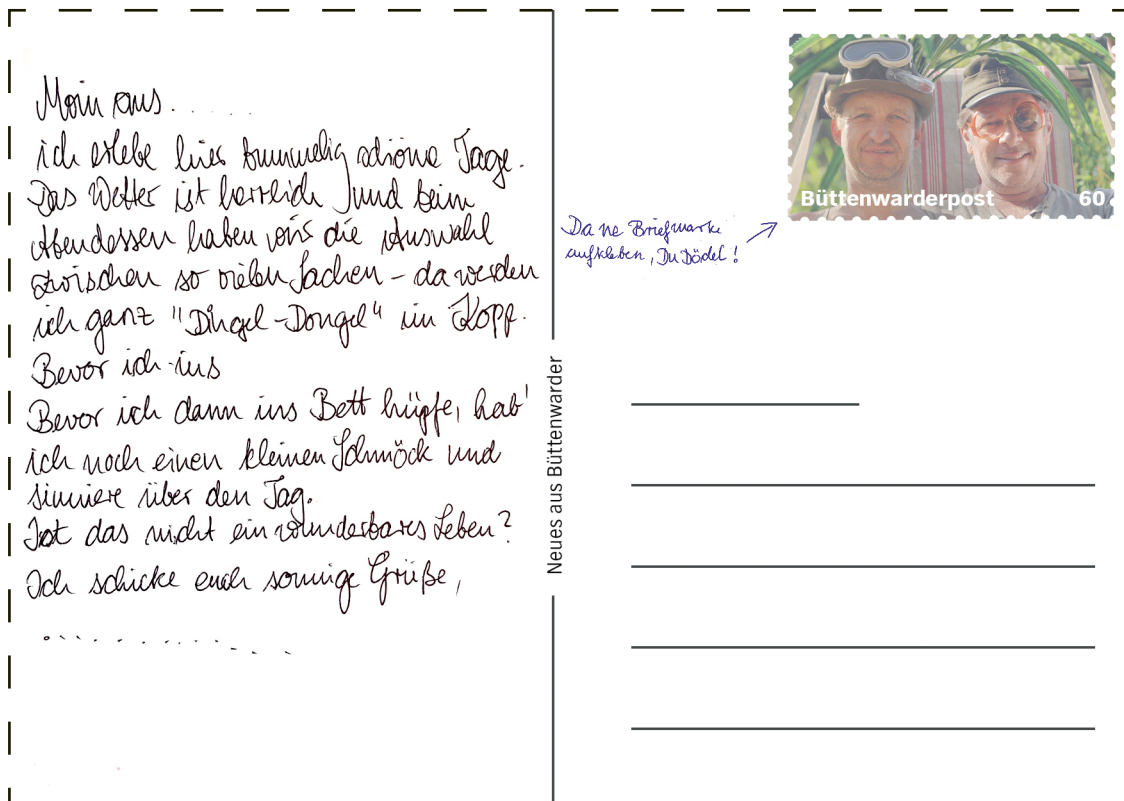 Moin aus . . . . . .
ich erlebe hier bummelig schöne Tage.
Das Wetter ist herrlich und beim
Abendessen haben wir die Auswahl
zwischen so vielen Sachen – da werden
ich ganz "Dingel-Dongel" im Kopp.
Bevor ich ins
Bevor ich dann ins Bett hüpfe, hab'
ich noch einen kleinen Schmöck und
simmiere über den Tag.
Ist das nicht ein wunderbares Leben?
Ich schicke euch sonnige Grüße,
. . . . . . . . . . . .
Neues aus Büttenwarder
Büttenwarderpost 60
Da ne Briefmarke
aufkleben, Du Dödel!